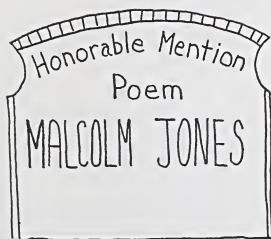 Honorable Mention
Poem
MALCOLM JONES